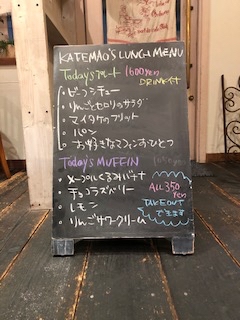 KATEMAO'S LUNCH MENU
Today'sプレート 1600yen
DRINK付
・ビーフシチュー
・りんごとセロリのサラダ
・マイタケのフリット
・パン
・お好きなマフィンひとつ
Today's MUFFIN
・メープルくるみバナナ
・チョコラズベリー
・レモン
・りんごサワークリーム
ALL350
yen
TAKEOUT
できます